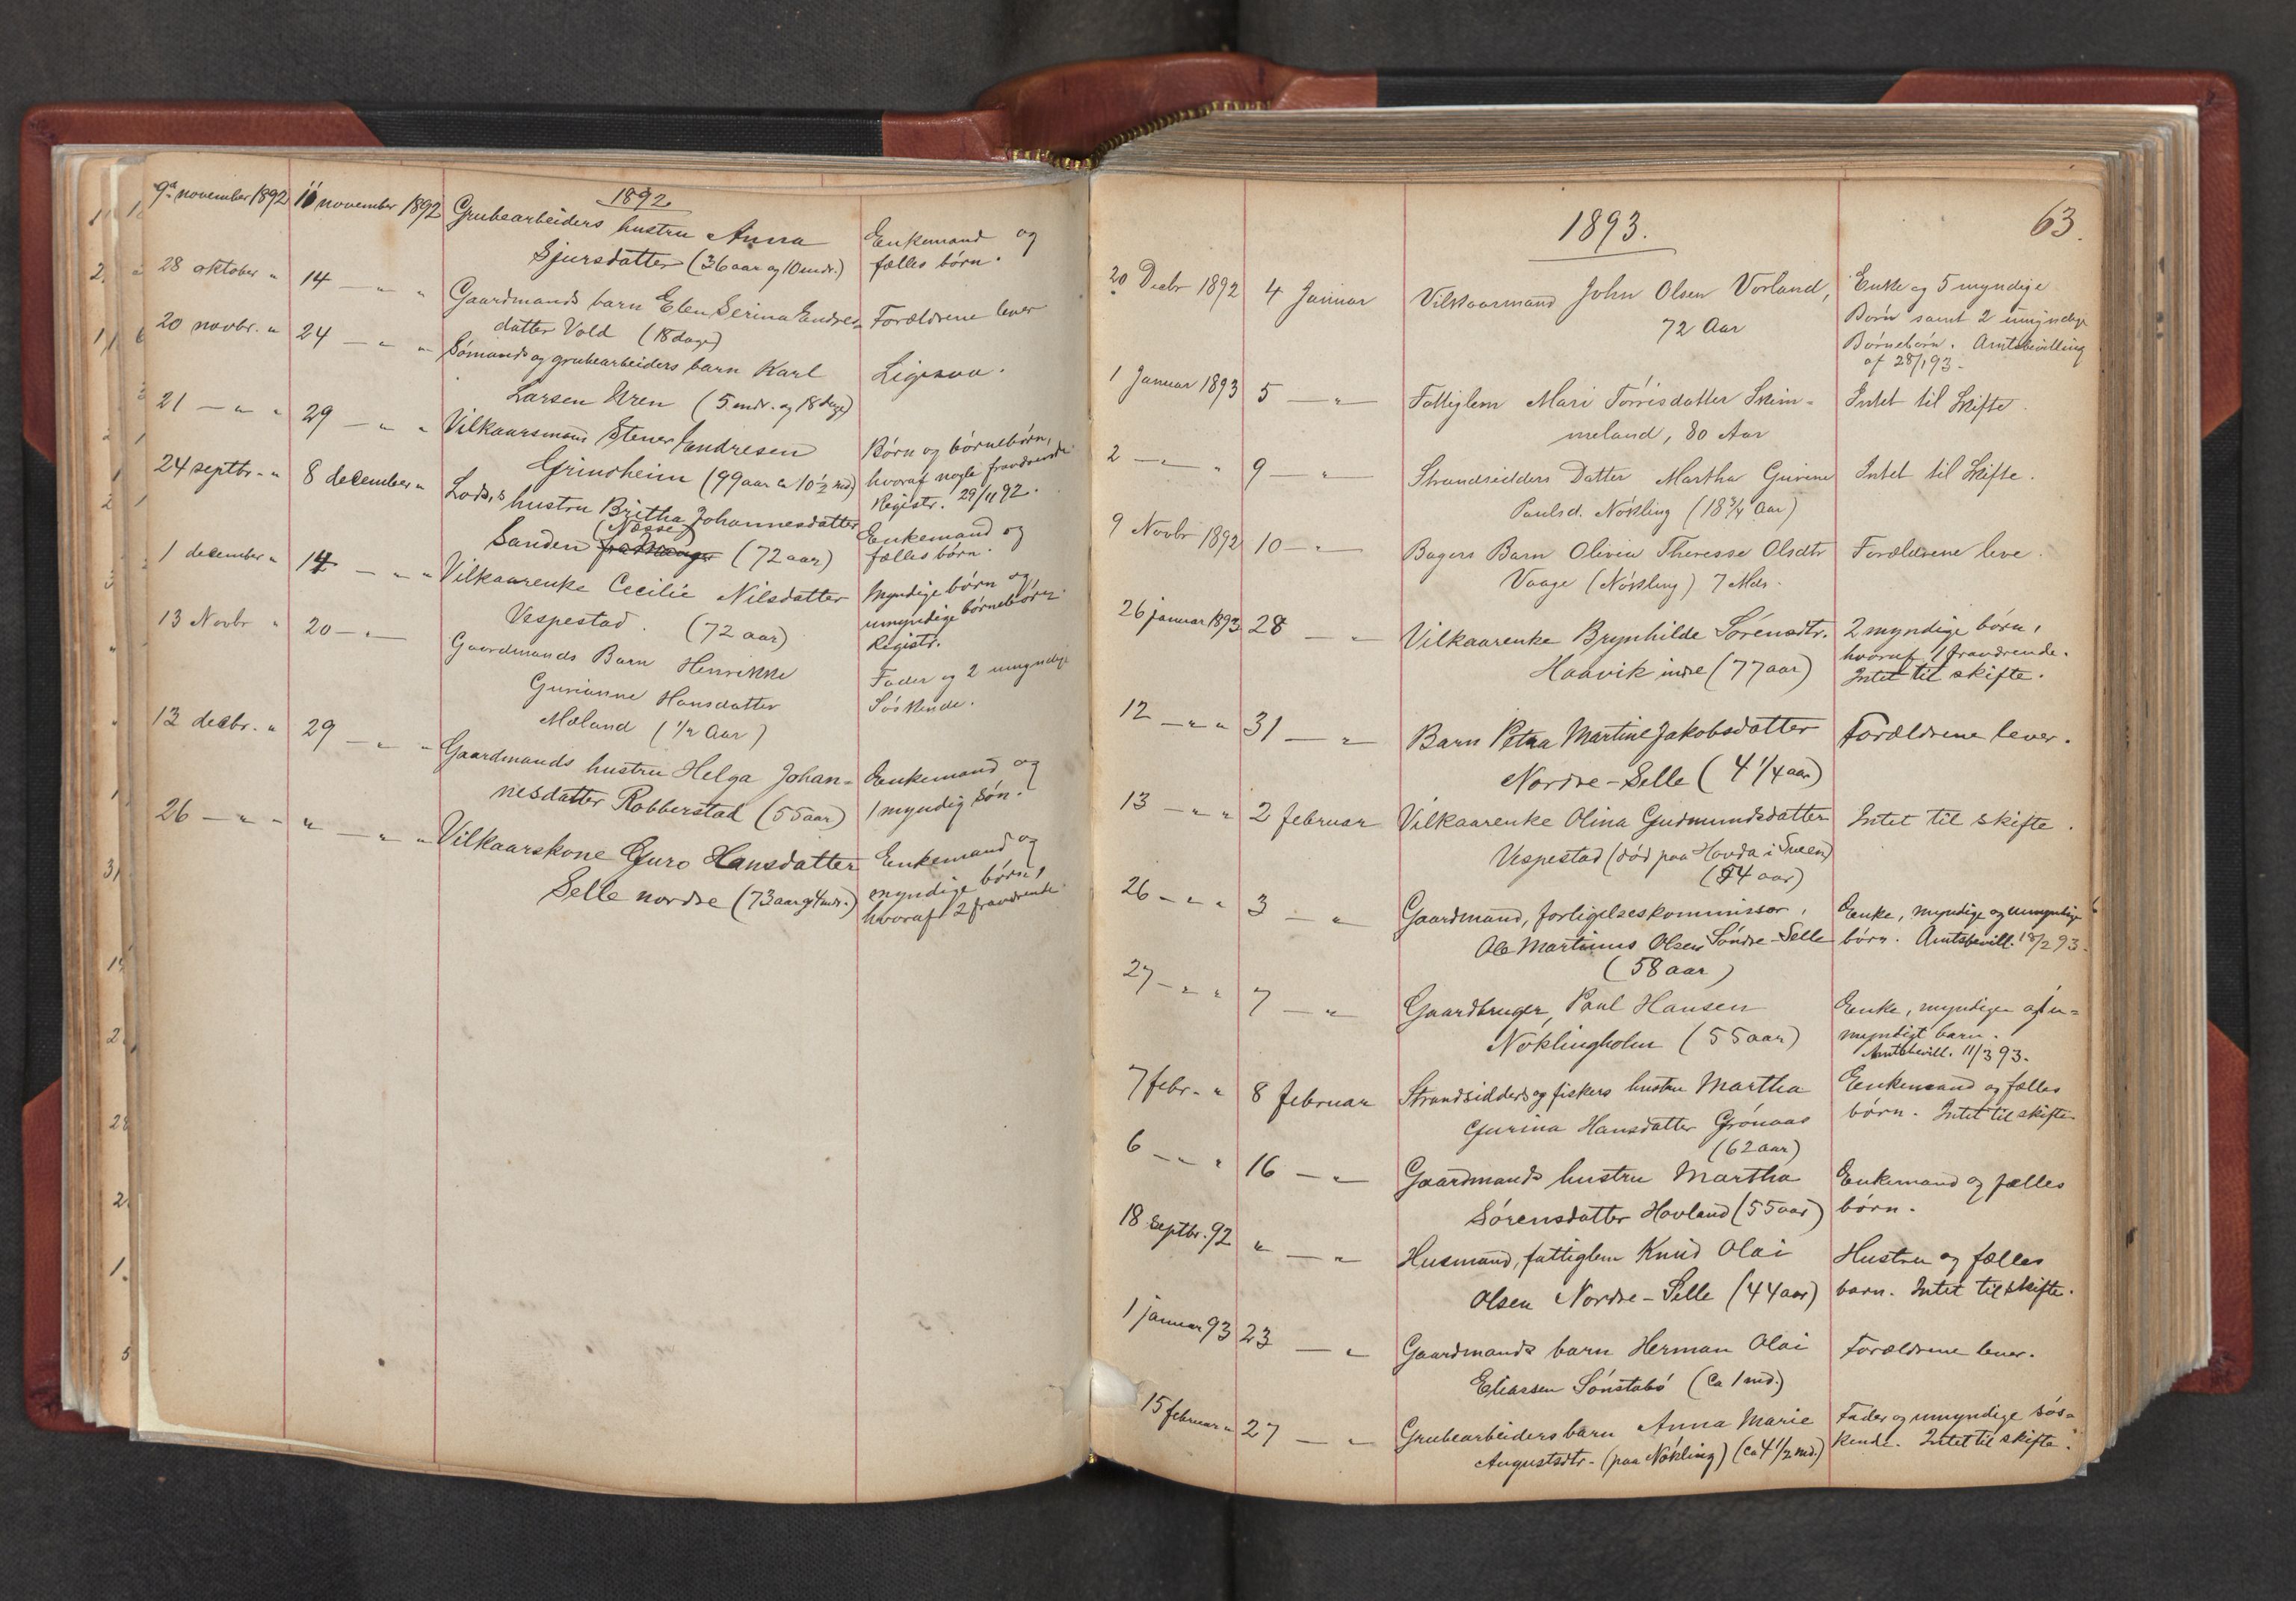 1892
9de november 1892 11 november 1892 Grubearbeiders hustru Anna Enkemand og
Sjursdatter (36 aar og 10 mdr.) fælles børn.
28 oktober " 14 — " " Gaardmands barn Elen Serina Endres- Forældrene lever
datter Vold (18 dage)
20 novbr. " 24 — " " Sømands og grubearbeiders barn Karl Ligesaa.
Larsen Uren (5 mdr. og 18 dage)
21 — " " 29 — " " Vilkaarsmand Stener Endresen Børn og børnebørn,
Grindheim (99 aar ca 10½ md) hvoraf nogle fraværende
Registr. 29/11 92.
24 septbr. " 8 december " Lods,s hustru Britha Johannesdatter Enkemand og
(Næsse)
Sanden fra Manger (72 aar) fælles børn.
1 december " 14 — " " Vilkaarenke Cecilie Nilsdatter Myndige børn og
Vespestad. (72 aar) umyndige børnebørn
Registr.
13 Novbr " 20 — " — Gaardmands Barn Henrikke Fader og 2 umyndige
Gurianne Hansdatter Søskende.
Mæland (1/2 Aar)
12 decbr. " 29 — " " Gaardmands hustru Helga Johan- Enkemand og
nesdatter Robberstad (55 aar) 1 myndig søn.
26 — " " " — " " Vilkaarskone Guro Hansdatter Enkemand og
Selle nordre (73 aar og 4 mdr.) myndige børn,
hvoraf 2 fraværende
63.
1893.
20 Decbr 1892 4 Januar Vilkaarmand John Olsen Vorland, Enke og 5 myndige
72 Aar Børn samt 2 umyndige
Børnebørn. Amtsbevilling
af 28/1 93.
1 Januar 1893 5 — " — Fattiglem Mari Tørrisdatter Skim- Intet til Skifte.
meland, 80 Aar
2 — " — " 9 — " — Strandsidders Datter Martha Gurine Intet til Skifte.
Paulsd. Nökling (18 3/4 Aar)
9 Novbr 1892 10 — " — Bagers Barn Olivia Theresse Olsdtr Forældrene leve.
Vaage (Nökling) 7 Mdr.
26 januar 1893 28 — " Vilkaarenke Brynhilde Sørensdtr. 2 myndige børn,
Haavik indre (77 aar) hvoraf 1 fraværende.
Intet til skifte.
12 — " " 31 — " Barn Petra Martine Jakobsdatter Forældrene lever.
Nordre-Selle (4 1/4 aar)
13 — " " 2 februar Vilkaarenke Olina Gudmundsdatter Intet til skifte.
Vespestad (død paa Hovda i Sveen)
(74 aar)
26 — " " 3 — " Gaardmand, forligelseskommissær, Enke, myndige og umyndige
Ole Martinus Olsen Søndre-Selle børn. Amtsbevill. 18/2 93.
(58 aar)
27 — " " 7 — " Gaardbruger, Paul Hansen Enke, myndige og 1 u-
Nøklingholm (55 aar) myndigt barn.
Amtsbevill. 11/3 93.
7 febr. " 8 februar Strandsidders og fiskers hustru Martha Enkemand og fælles
Gurina Hansdatter Grønaas børn. Intet til skifte
(62 aar)
6 — " " 16 — " Gaardmands hustru Martha Enkemand og fælles
Sørensdatter Hovland (55 aar) børn.
18 septbr. 92 " — " Husmand, fattiglem Knud Olai Hustru og fælles
Olsen Nordre-Selle (44 aar) barn. Intet til skifte.
1 januar 93 23 — " Gaardmands barn Herman Olai Forældrene lever.
Eliassen Sønstabø (ca 1 md.)
15 februar " 27 — " Grubearbeiders barn Anna Marie Fader og umyndige søs-
Augustsdtr. (paa Nøkling) (ca 4 1/2 md.) kende. Intet til skifte.